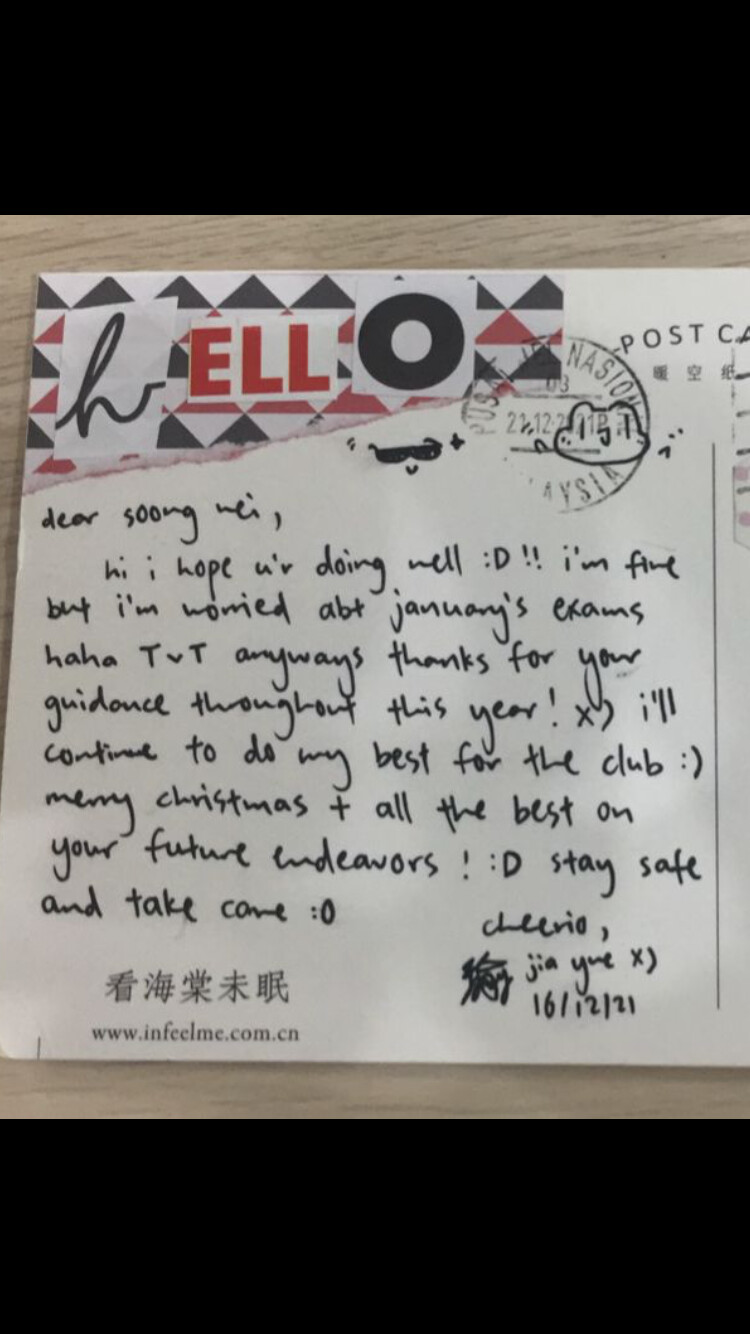 hELLO
POST CA
暖 空 纸
PUSAT NASION
03
21.12.2021
AYSIA
dear soong wei,
hi i hope u'r doing well :D !! i'm fine
but i'm worried abt january's exams
haha TvT anyways thanks for your
guidance throughout this year! x) i'll
continue to do my best for the club :)
merry christmas + all the best on
your future endeavors ! :D stay safe
and take care :O
cheerio,
jia yue x)
16/12/21
看海棠未眠
www.infeelme.com.cn